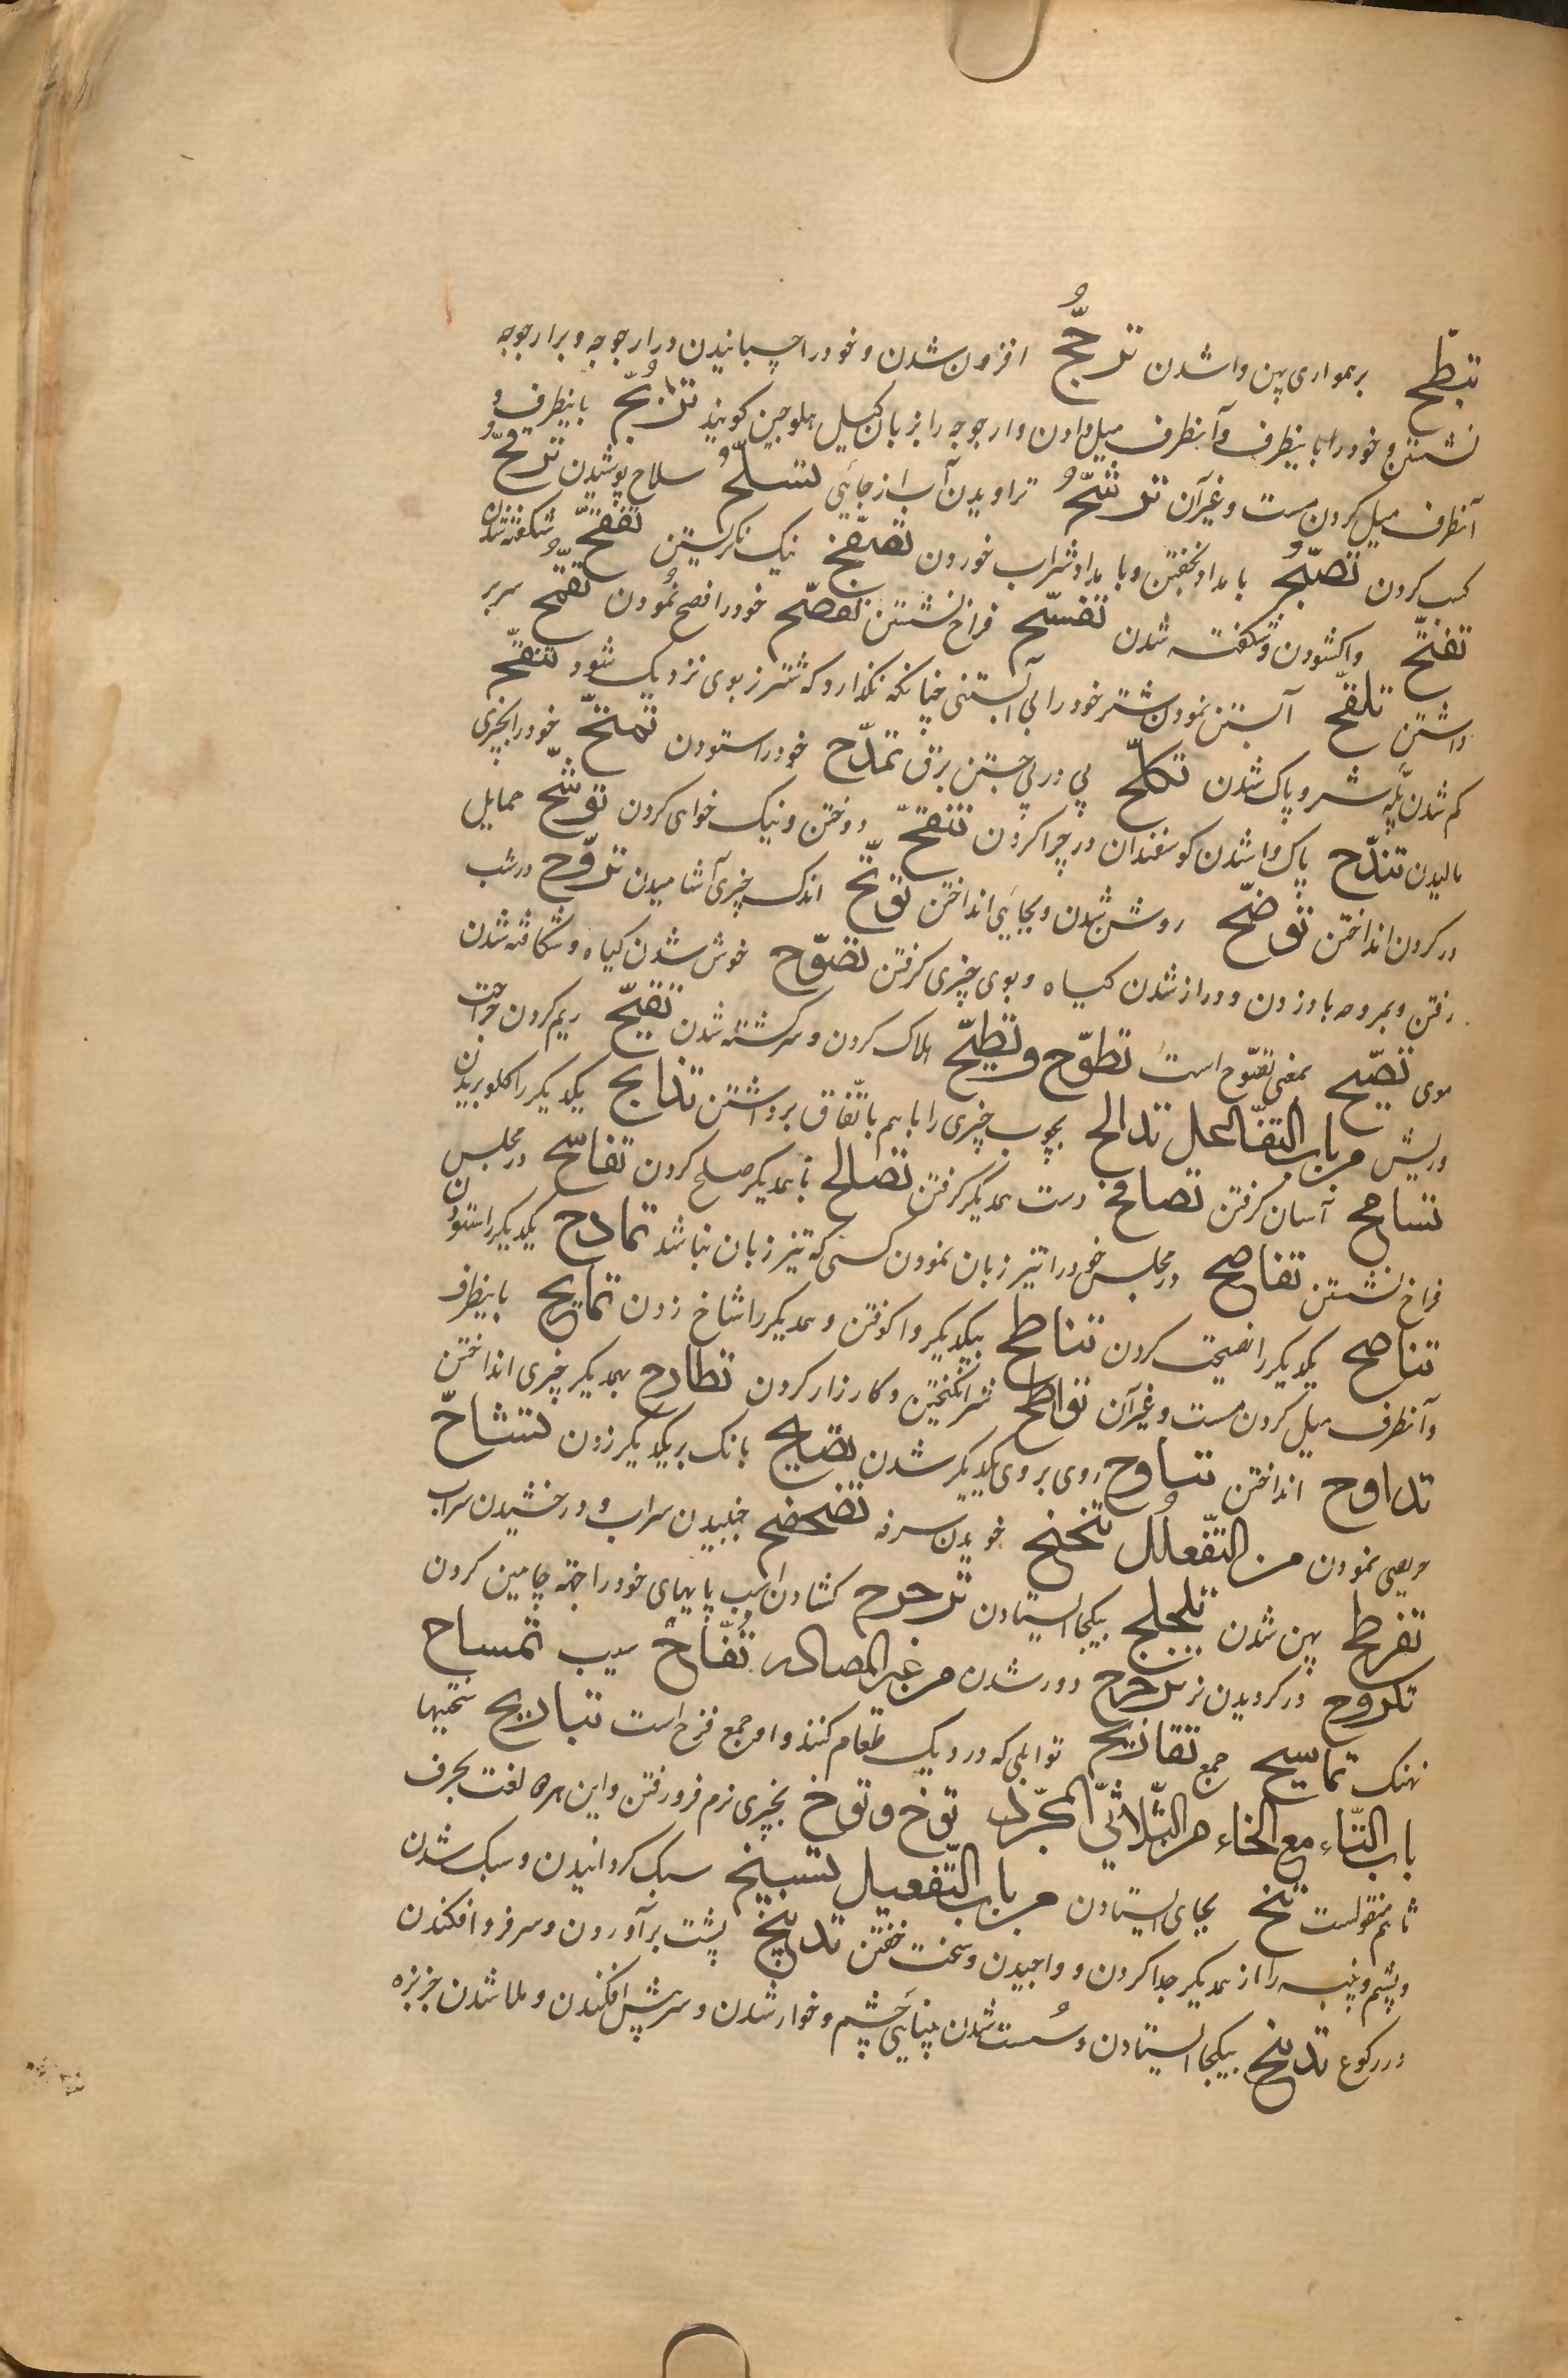 تبطّح برهمواری پهن واشدن ترجّح افزون شدن و خود را چسبانیدن در ارجوجه و بر ارجوجه
نشستن و خود را باینطرف و آنطرف میل دادن و ارجوجه را بزبان کیل هلوجین کویند ترنّح باینطرف و
آنطرف میل کردن مست و غیر آن ترشّح تراویدن آب از جائی تسلّح سلاح پوشیدن ترقّح
کسب کردن تصبّح بامداد بخفتن و بامداد شراب خوردن تصفّح نیک نکریستن تفقّح شکفته شدن
تفتّح واکشودن و شکفته شدن تفسّح فراخ نشستن تفصّح خود را فصیح نمودن تقمّح سر بر
داشتن تلقّح آبستن نمودن شتر خود را بی آبستنی چنانکه نکذارد که شتر نر بوی نزدیک شود تنقّح
کم شدن پیه شتر و پاک شدن تکلّح پی در پی جستن برق تمدّح خود را ستودن تمسّح خود را بچیزی
مالیدن تندّح پاک واشدن کوسفندان در چرا کردن تنصّح دوختن و نیک خواهی کردن توشّح حمایل
در کردن انداختن توضّح روشن شدن و بجائی انداختن توتّح اندک چیزی آشامیدن تروّح در شب
رفتن و بمروحه باد زدن و دراز شدن کیاه و بوی چیزی کرفتن تصوّح خوش شدن کیاه و شکافته شدن
موی تصیّح بمعنی تصوّح است تطوّح و تطیّح هلاک کردن و سرکشته شدن تقیّح ریم کردن جراحت
و ریش من باب التفاعل تدالح بچوب چیزی را با هم باتّفاق برداشتن تذابح یکدیکر را کلو بریدن
تسامح آسان کرفتن تصافح دست همدیکر کرفتن تصالح با همدیکر صلح کردن تفاسّح در مجلس
فراخ نشستن تفاصح در مجلس خود را تیز زبان نمودن کسی که تیز زبان نباشد تمادح یکدیکر را ستودن
تناصح یکدیکر را نصیحت کردن تناطح بیکدیکر واکوفتن و همدیکر را شاخ زدن تمایح باینطرف
و آنطرف میل کردن مست و غیر آن تواطح شر انکیختن و کارزار کردن تطارح بهمدیکر چیزی انداختن
تداوح انداختن تناوح روی بروی یکدیکر شدن تصایح بانک بر یکدیکر زدن تشاحّ
حریصی نمودن من التّفعلل تنحنح خویدن سرفه تضحضح جنبیدن سراب و درخشیدن سراب
تفرطح پهن شدن تلحلح بیکجا ایستادن ترحرح کشادن اسب پایهای خود را جهة چامین کردن
تکروح در کردیدن تزحزح دور شدن من غیر المصادر تفّاح سیب تمساح
نهنک تماسیح جمع تقازیح توابلی که در دیک طعام کنند و او جمع قزح است تباریح سختیها
باب التّاء مع الخاء من الثّلاثیّ المجرّد توخ و توخ بچیزی نرم فرو رفتن و این هر دو لغت بحرف
ثا هم منقولست تنخ بجای ایستادن من باب التّفعیل تسبیخ سبک کردانیدن و سبک شدن
و پشم و پنبه را از همدیکر جدا کردن و واچیدن و سخت خفتن تدبیخ پشت برآوردن و سر فرو افکندن
در رکوع تدنیخ بیکجا ایستادن و سست شدن بینائی چشم و خوار شدن و سر پیش افکندن و ملا شدن خربزه